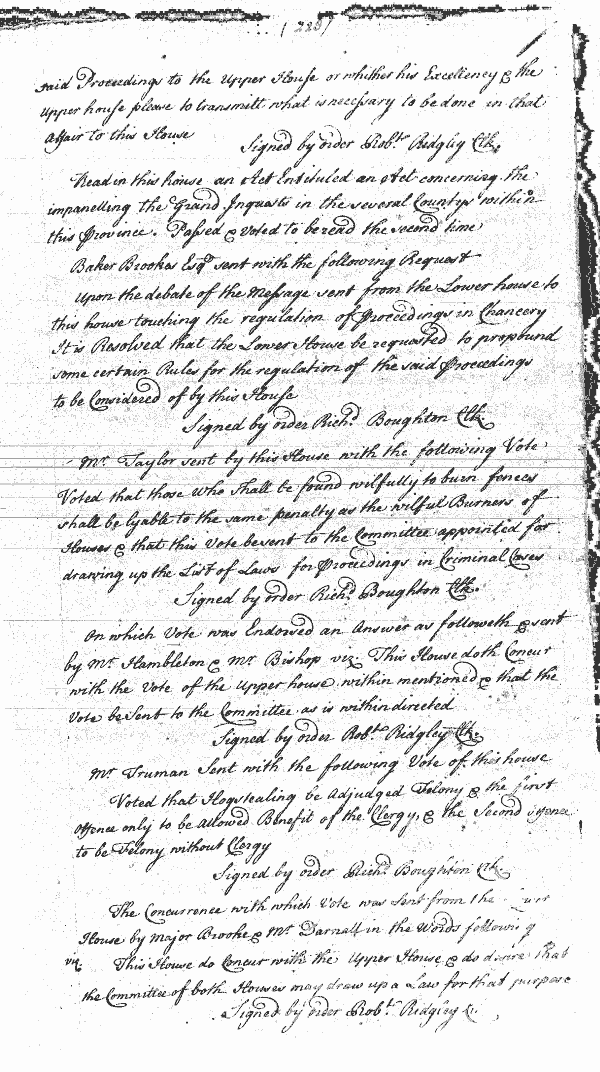 ( 228 )
said Proceedings to the Upper House or whither his Excellency & the
Upper house please to transmitt what is necessary to be done in that
Affair to this House
Signed by order Robt Ridgley Clk.
Read in this house an Act Entituled an Act concerning the
impanelling the Grand Inquests in the several Countys within
this Province. Passed & Voted to be read the second time
Baker Brookes Esqr sent with the following Request
Upon the debate of the Message sent from the Lower house to
this house touching the regulation of Proceedings in Chancery
It is Resolved that the Lower House be requested to propound
some certain Rules for the regulation of the said Proceedings
to be Considered of by this House
Signed by order Richd Boughton Clk.
Mr Taylor sent by this House with the following Vote
Voted that those who shall be found wilfully to burn fences
shall be lyable to the same penalty as the wilful Burners of
Houses & that this Vote be sent to the Committee appointed for
drawing up the List of Laws for Proceedings in Criminal Cases
Signed by order Richd Boughton Clk.
On which Vote was Endorsed an Answer as followeth & sent
by Mr Hambleton & Mr Bishop viz. This House doth Concur
with the Vote of the Upper house within mentioned & that the
Vote be Sent to the Committee as is within directed
Signed by order Robt Ridgley Clk.
Mr Truman Sent with the following Vote of this house
Voted that Hogstealing be Adjudged Felony & the first
offence only to be Allowed Benefit of the Clergy, & the Second offence
to be Felony without Clergy
Signed by order Richd Boughton Clk
The Concurrence with which Vote was sent from the
House by Major Brooke & Mr Darnall in the Words following
viz. This House do Concur with the Upper House & do desire that
the Committee of both Houses may draw up a Law for that purpose
Signed by order Robt Ridgley Cl